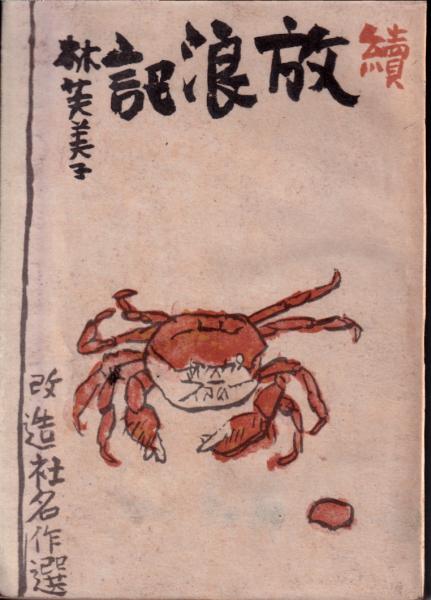 續放浪記
林芙美子
改造社名作選